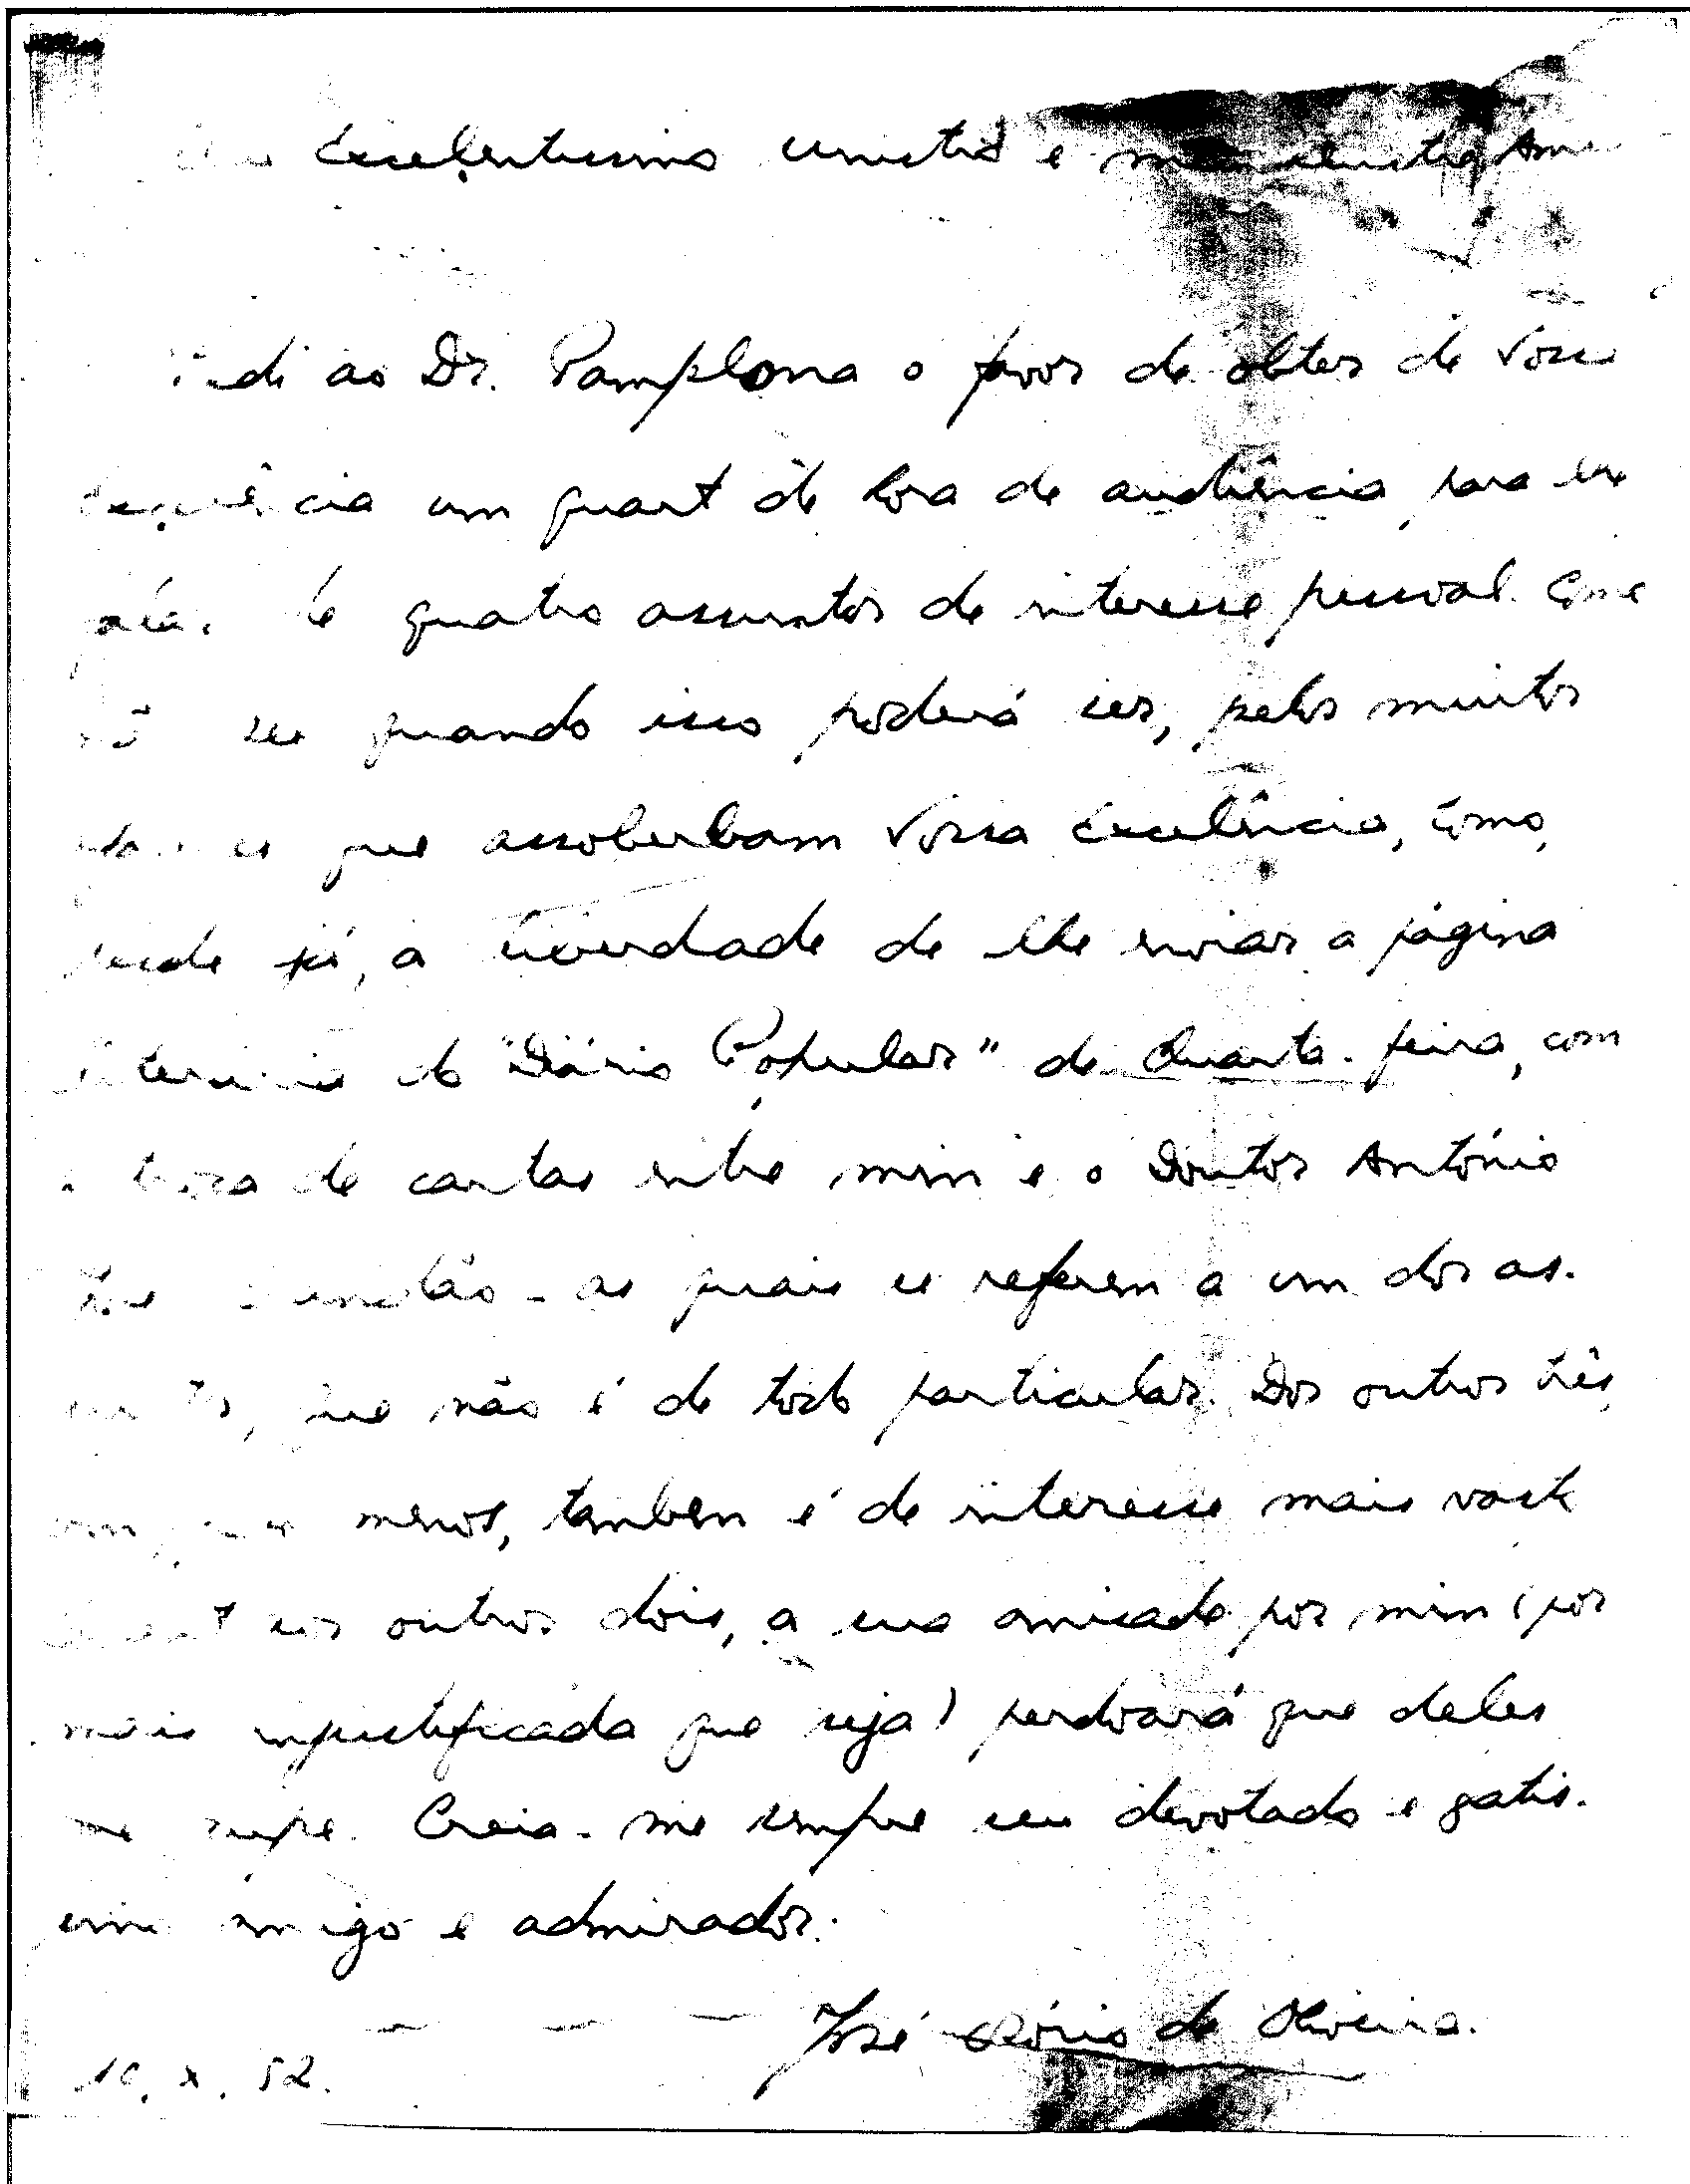 Excelentíssimo ministro e meu ilustre
ao Dr. Pamplona o favor de obter de Vossa
Excelência um quarto de hora de audiência para lhe
falar de quatro assuntos de interesse pessoal. Como
não sei quando isso poderá ser, pelos muitos
que assoberbam Vossa Excelência, tomo,
desde já, a liberdade de lhe enviar a página
literária do "Diário Popular" de Quarta-feira, com
a troca de cartas entre mim e o Doutor António
- as quais se referem a um dos as-
suntos, que não é de todo particular. Dos outros três,
um, menos, tambem é de interesse mais vasto
aos outros dois, a sua amizade por mim (por
mais injustificada que seja) perdoará que deles
me ocupe. Creia-me sempre seu devotado e gratís-
simo amigo e admirador.
José Osório de Oliveira.
10. X. 52.